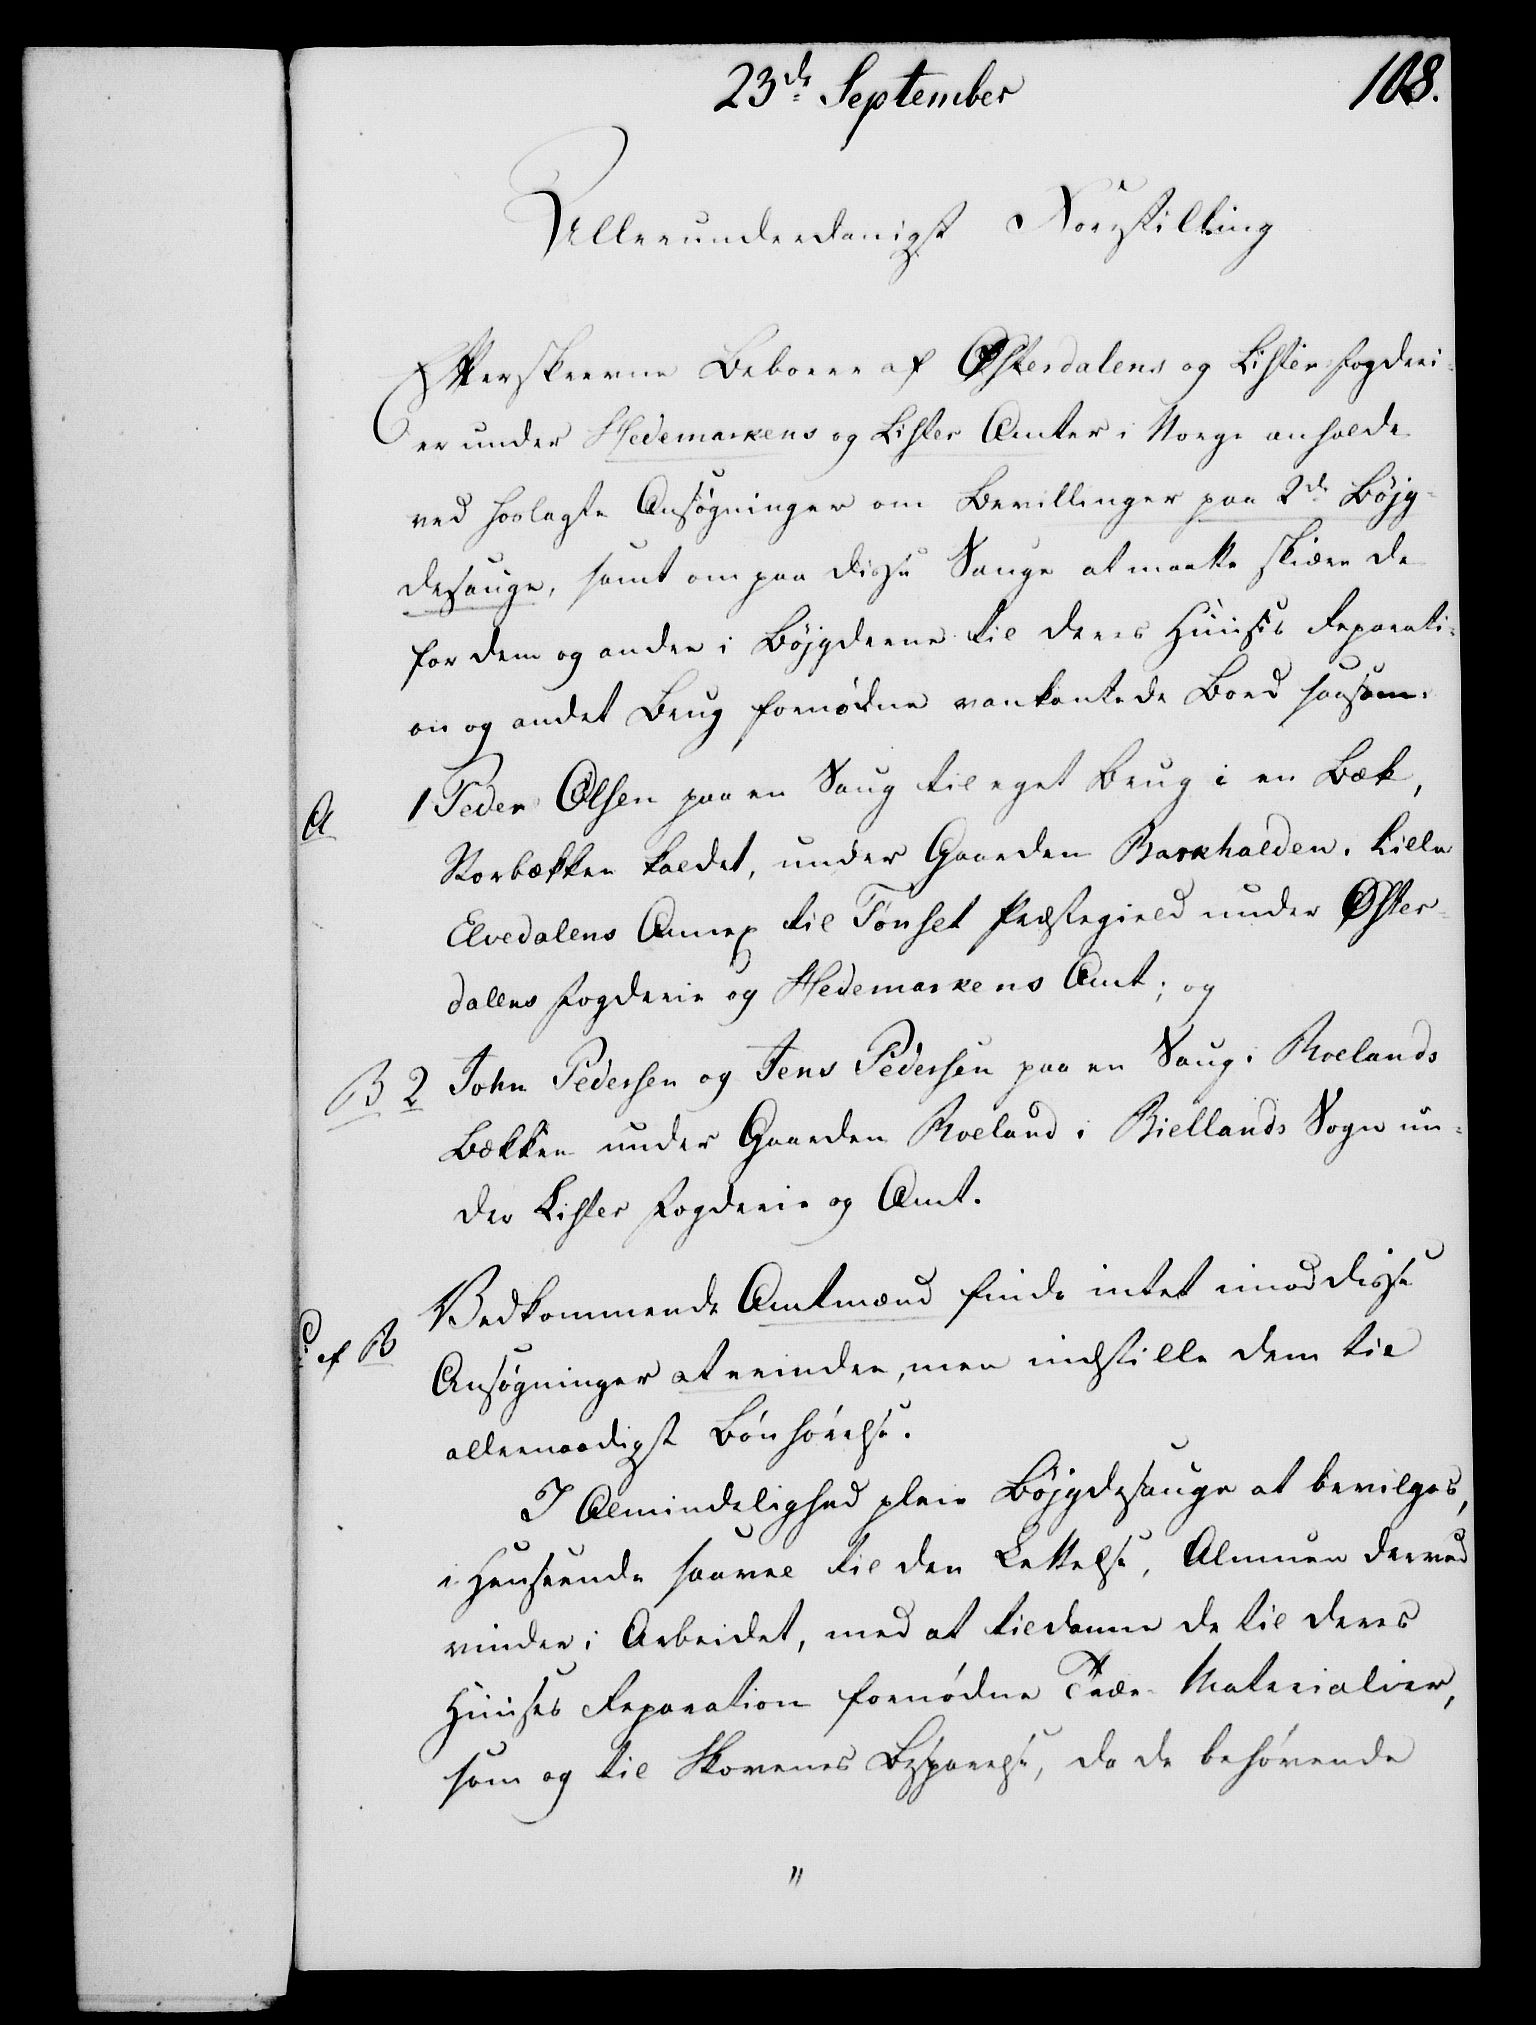 23de September
108.
Allerunderdanigst Forestilling
Efterskrevne Beboere af Østerdalens og Lister Fogderi-
er under Hedemarkens og Lister Amter i Norge anholde
ved hoslagte Ansøgninger om Bevillinger paa 2de Bøjg-
desauge, samt om paa disse Sauge at maatte skiære de
for dem og andre i Bøjgderne til deres Huuses Reparati-
on og andet Brug fornødne vankantede Bord saasom:
A 1 Peder Olsen paa en Saug til eget Brug i en Bæk,
Storbækken kaldet, under Gaarden Barkhalden i Lille
Elvedalens Annex til Tønset Præstegield under Øster-
dalens Fogderie og Hedemarkens Amt; og
B 2 John Pedersen og Jens Pedersen paa en Saug i Roelands
Bækken under Gaarden Roeland i Biellands Sogn un-
der Lister Fogderie og Amt.
Vedkommende Amtmænd finde intet imod disse
af B
Ansøgninger at erindre, men indstille dem til
allernaadigst Bønhørelse.
I Almindelighed pleie Bøjgdesauge at bevilges,
i Henseende saavel til den Lettelse, Almuen derved
vinder i Arbeidet, med at tildanne de til deres
Huuses Reparation fornødne Træe-Materialier,
som og til Skovenes Besparelse, da de behøvende
"